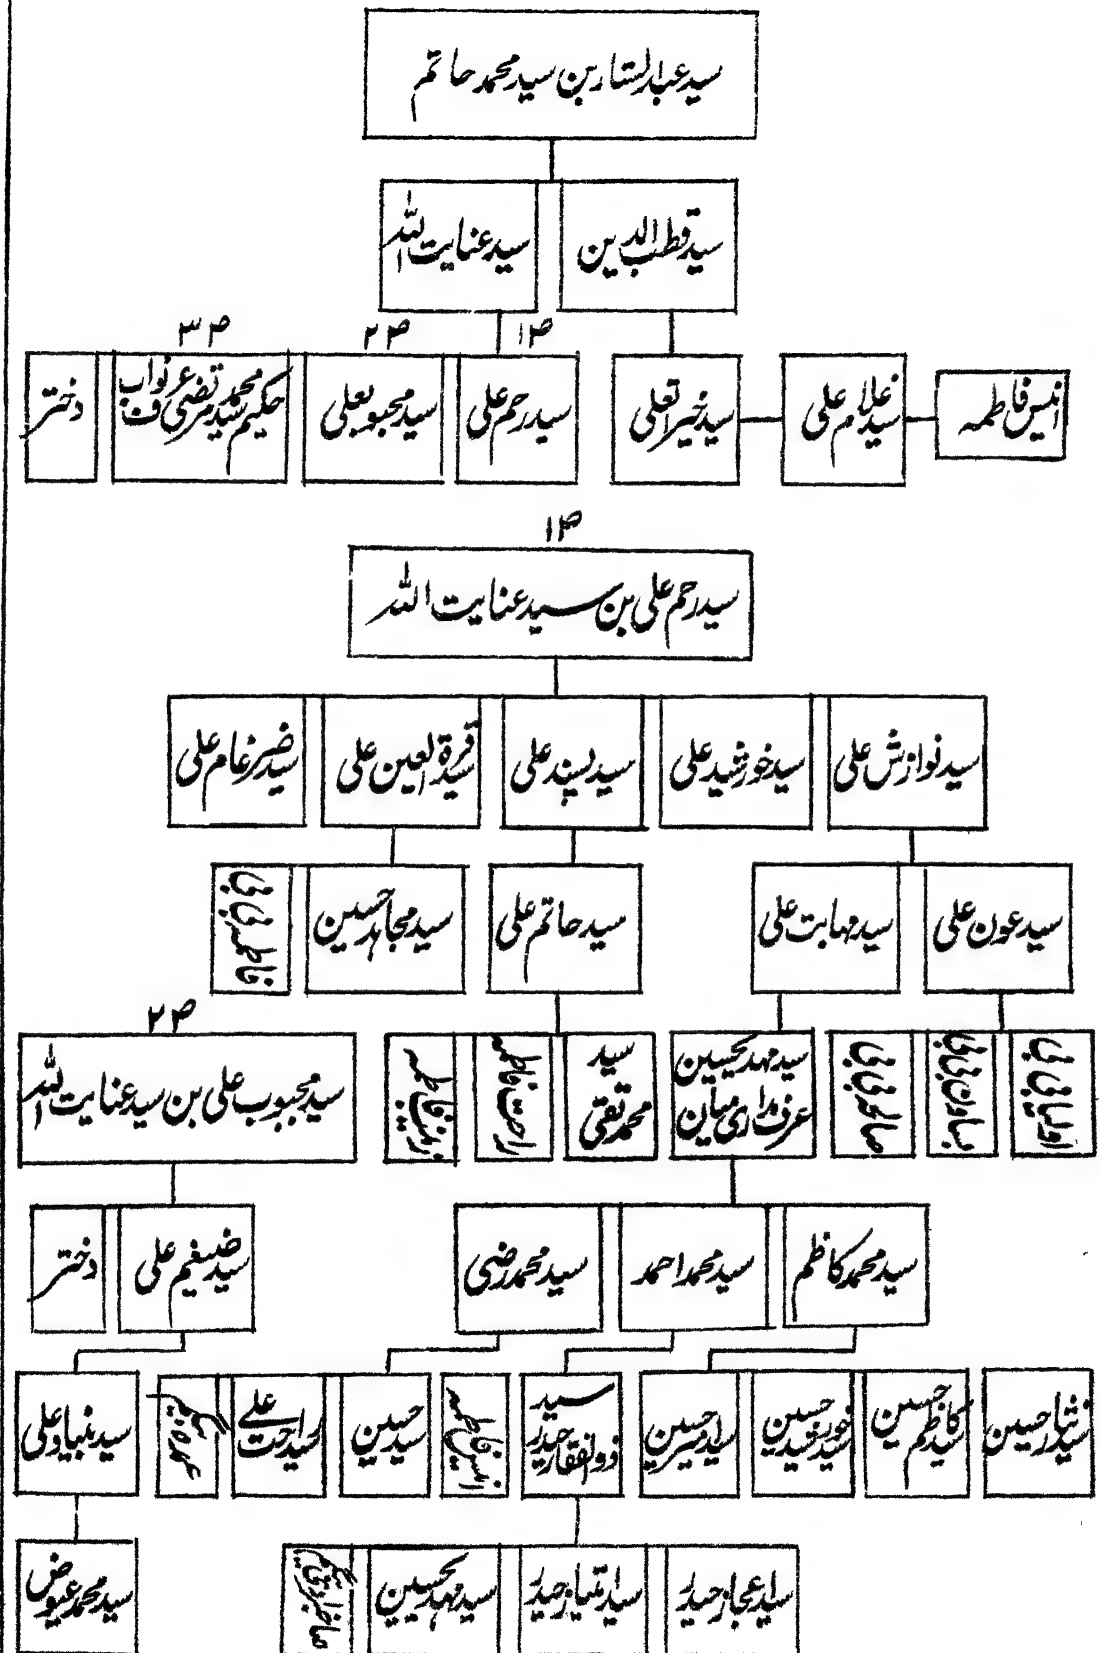 سید عبدالستار بن سید محمد حاتم
سید قطب الدین
سید عنایت اللہ
ص ۱
ص ۲
ص ۳
انیس فاطمہ
سید غلام علی
سید خیرات علی
سید رحم علی
سید محبوب علی
حکیم سید محمد مرتضی عرف نواب
دختر
ص ۱
سید رحم علی بن سید عنایت اللہ
سید نوازش علی
سید خورشید علی
سید پسند علی
سید قرۃ العین علی
سید ضرغام علی
سید عون علی
سید مہابت علی
سید حاتم علی
سید مجاہد حسین
فاطمہ بی بی
اولیا بی بی
صالحہ بی بی
سید مہدی حسین
عرف مداری میاں
سید
محمد تقی
راحت فاطمہ
نرجس فاطمہ
ص ۲
سید محبوب علی بن سید عنایت اللہ
سید محمد کاظم
سید محمد احمد
سید محمد رضی
سید ضیغم علی
دختر
سید نثار حسین
سید کاظم حسین
سید خورشید حسین
سید امیر حسین
سید
ذوالفقار حیدر
انیس فاطمہ
سید حسین
سید راحت علی
سید بنیاد علی
سید اعجاز حیدر
سید امتیاز حیدر
سید مہدی حسین
سید محمد عیوض